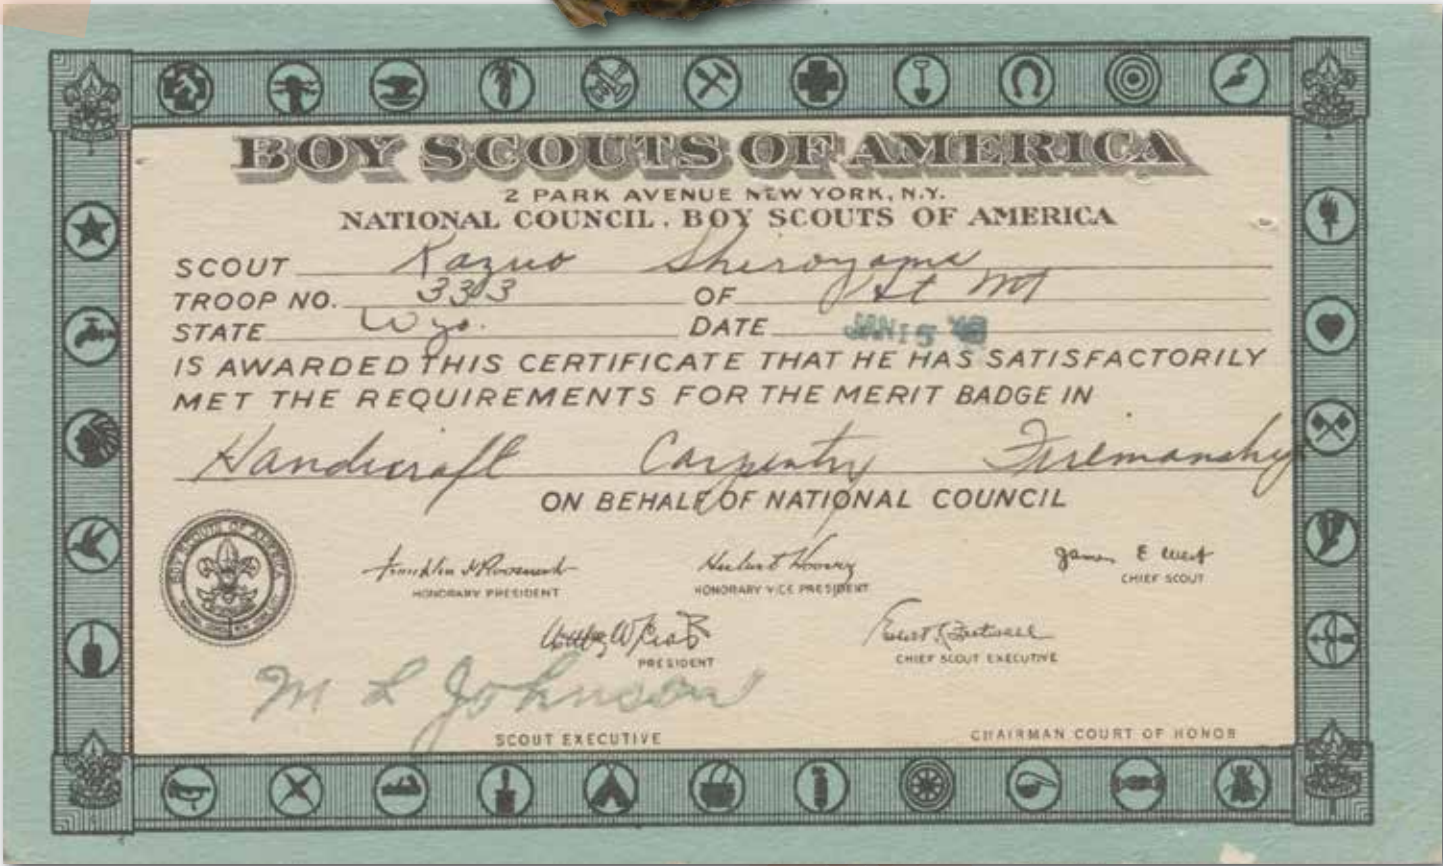 BOY SCOUTS OF AMERICA
2 PARK AVENUE NEW YORK, N.Y.
NATIONAL COUNCIL. BOY SCOUTS OF AMERICA
SCOUT Kazuo Shiroyama
TROOP NO. 333 OF Ht Mt
STATE Wyo. DATE JAN 15
IS AWARDED THIS CERTIFICATE THAT HE HAS SATISFACTORILY
MET THE REQUIREMENTS FOR THE MERIT BADGE IN
Handicraft Carpentry Firemanship
ON BEHALF OF NATIONAL COUNCIL
BOY SCOUTS OF AMERICA
Franklin D Roosevelt Herbert Hoover James E West
HONORARY PRESIDENT HONORARY VICE PRESIDENT CHIEF SCOUT
PRESIDENT CHIEF SCOUT EXECUTIVE
M L Johnson
SCOUT EXECUTIVE CHAIRMAN COURT OF HONOR